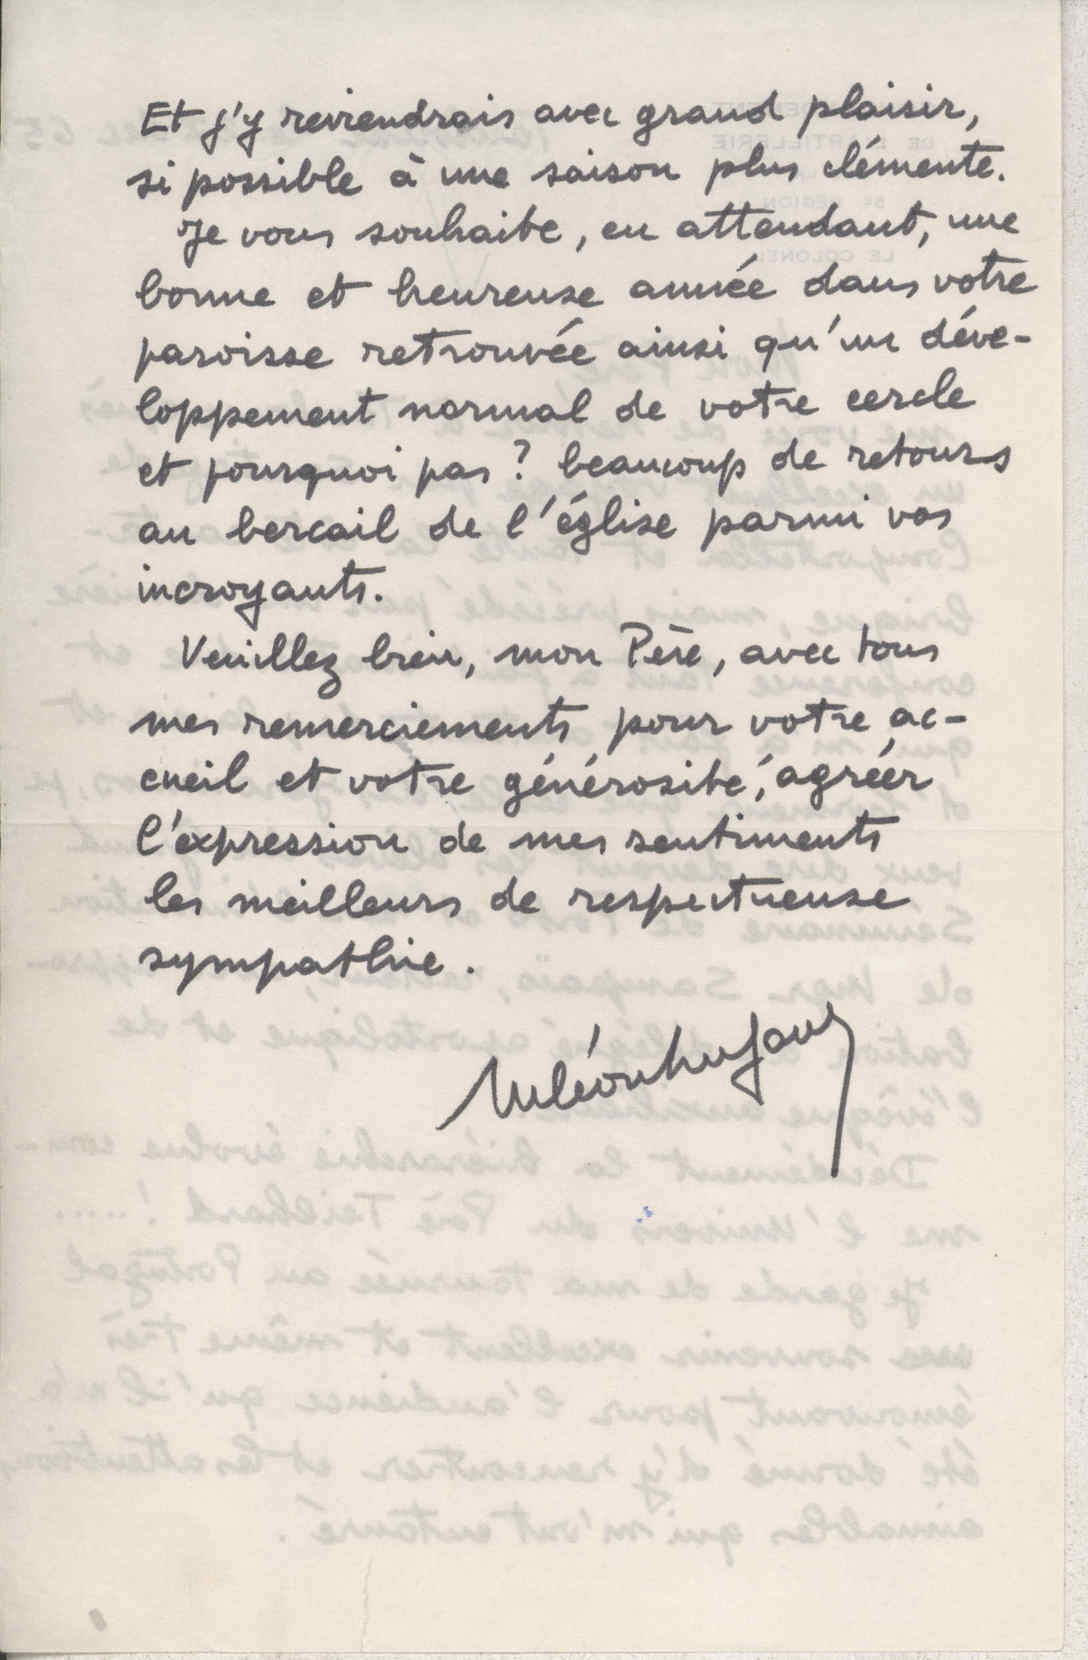 Et j'y reviendrais avec grand plaisir,
si possible à une saison plus clémente.
Je vous souhaite, en attendant, une
bonne et heureuse année dans votre
paroisse retrouvée ainsi qu'un déve-
loppement normal de votre cercle
et pourquoi pas ? beaucoup de retours
au bercail de l'église parmi vos
incroyants.
Veuillez bien, mon Père, avec tous
mes remerciements pour votre ac-
cueil et votre générosité, agréer
l'expression de mes sentiments
les meilleurs de respectueuse
sympathie.